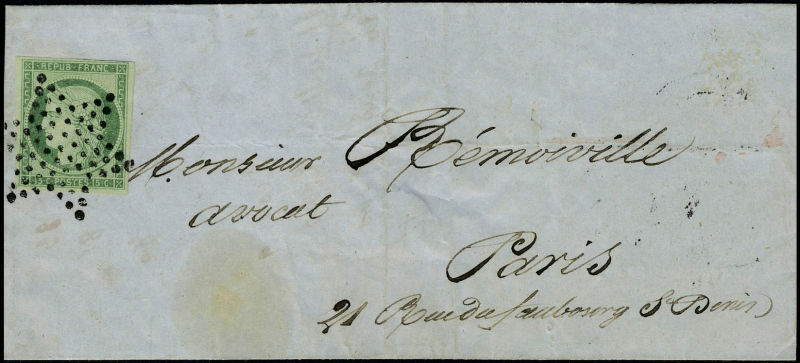 REPUB. FRANC.
15 C. POSTES 15 C.
Monsieur Rémoiville
avocat
Paris
21 Rue du faubourg St Denis